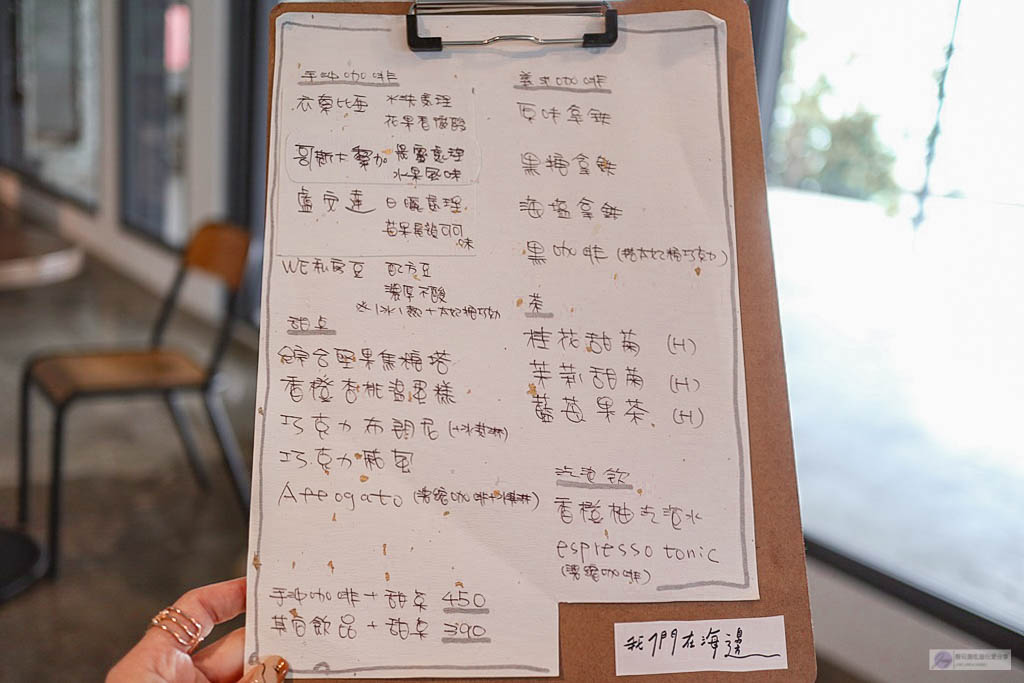 手沖咖啡
衣索比亞 水洗處理
花果香微酸
哥斯大黎加 蜜處理
水果風味
盧安達 日曬處理
莓果尾韻可可味
WE私房豆 配方豆
濃厚不酸
1冰1熱+太妃糖巧克力
甜点
綜合堅果焦糖塔
香橙杏桃蛋糕
巧克力布朗尼(+冰淇淋)
巧克力
Affogato (濃縮咖啡+冰淇淋)
手沖咖啡+甜点 450
其它飲品+甜点 390
義式咖啡
原味拿鐵
黑糖拿鐵
海鹽拿鐵
黑咖啡(搭太妃糖巧克力)
茶
桂花甜菊 (H)
茉莉甜菊 (H)
藍莓果茶 (H)
汽泡飲
香橙柚汽泡水
espresso tonic
(濃縮咖啡)
我們在海邊